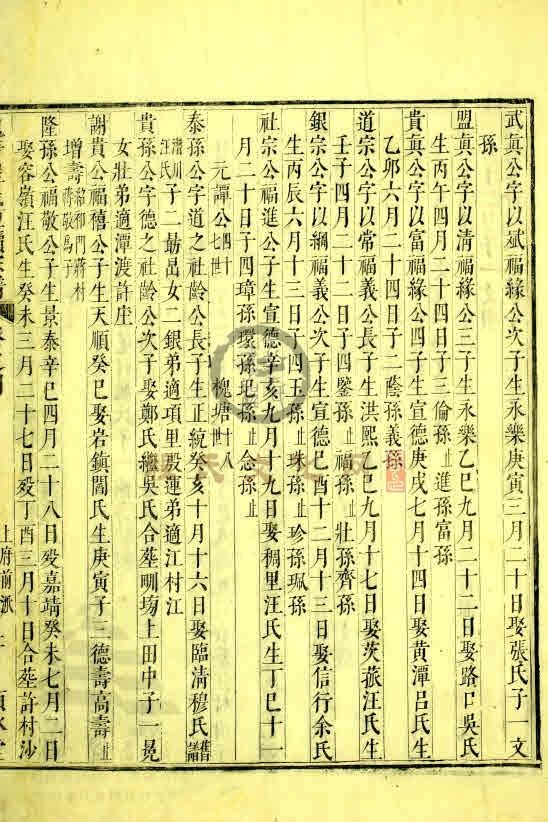 武眞公字以斌福緣公次子生永樂庚寅三月二十日娶張氏子一文
孫
盟眞公字以清福緣公三子生永樂乙巳九月二十二日娶路口吳氏
生丙午四月二十四日子三倫孫止進孫富孫
貴眞公字以富福緣公四子生宣德庚戌七月十四日娶黃潭呂氏生
乙卯六月二十四日子二蔭孫義孫
道宗公字以常福義公長子生洪熙乙巳九月十七日娶茨菰汪氏生
壬子四月二十二日子四鑒孫止福孫止壯孫齊孫
銀宗公字以綱福義公次子生宣德己酉十二月十三日娶信行余氏
生丙辰六月十三日子四玉孫止珠孫止珍孫珮孫
社宗公福進公子生宣德辛亥九月十九日娶稠里汪氏生丁巳十一
月二十日子四璋孫環孫玘孫止念孫止
元譚公四十七世 槐塘十八世
泰孫公字道之社齡公長子生正統癸亥十月十六日娶臨清穆氏舊譜
潛川汪氏子二勗勗女二銀弟適項里殷運弟適江村江
貴孫公字德之社齡公次子娶鄭氏繼吳氏合塟上田中子一晃
女壯弟適潭渡許庄
謝貴公福禧公子生天順癸巳娶岩鎮閻氏生庚寅子三德壽高壽止
增壽
隆孫公福敬公子生景泰辛巳四月二十八日歿嘉靖癸未七月二日
娶容嶺汪氏生癸未三月二十七日歿丁酉三月十日合塟許村沙
上府前派